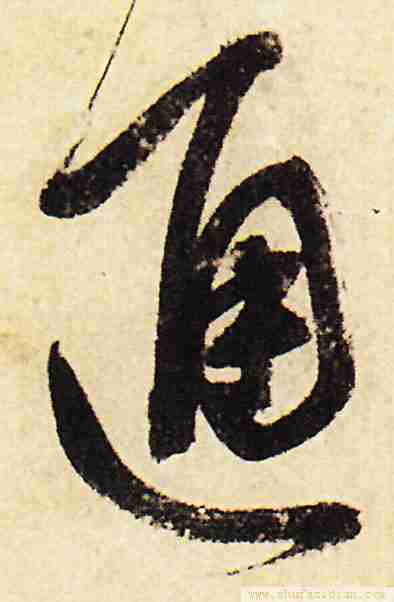 通
www.shufazidian.com